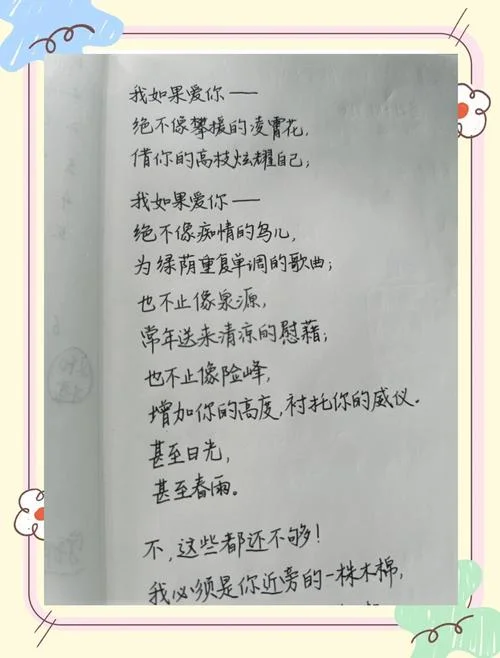 我如果爱你——
绝不像攀援的凌霄花，
借你的高枝炫耀自己；
我如果爱你——
绝不像痴情的鸟儿，
为绿荫重复单调的歌曲；
也不止像泉源，
常年送来清凉的慰藉；
也不止像险峰，
增加你的高度，衬托你的威仪。
甚至日光，
甚至春雨。
不，这些都还不够！
我必须是你近旁的一株木棉，